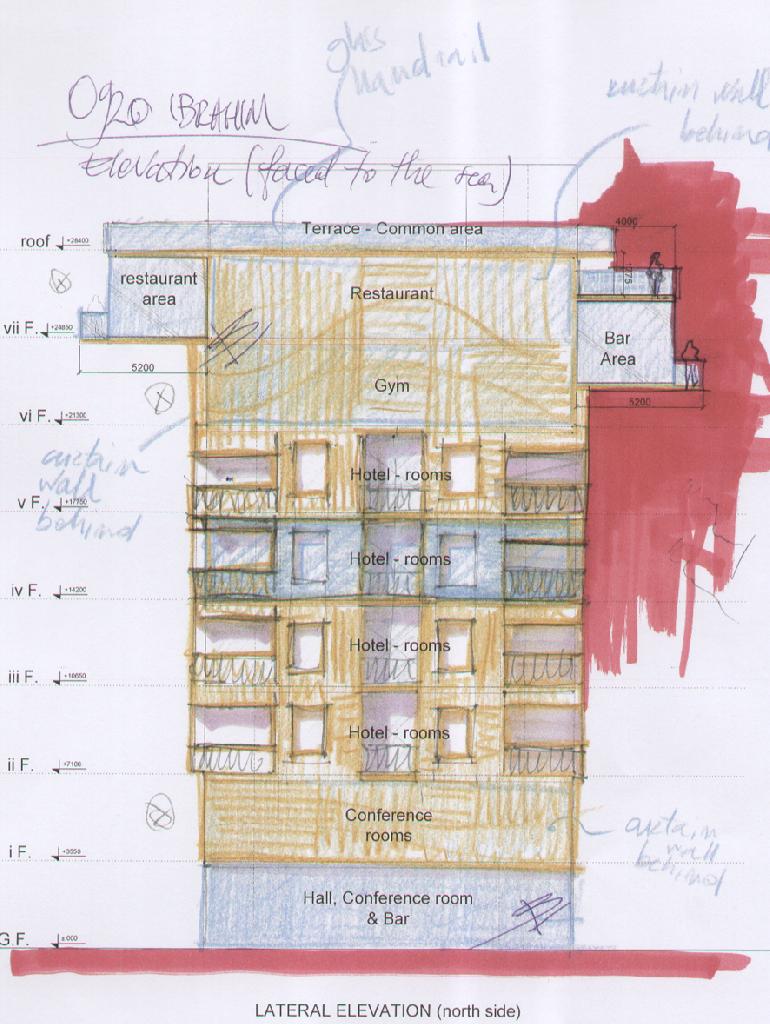 glass
handrail
OGRO IBRAHIM
Elevation (faced to the sea)
curtain wall
behind
Terrace - Common area
4000
roof
restaurant
area
Restaurant
vii F.
Bar
Area
5200
Gym
5200
vi F.
+21300
curtain
wall
behind
Hotel - rooms
v F.
+17750
Hotel - rooms
iv F.
+14200
Hotel - rooms
iii F.
+10650
Hotel - rooms
ii F.
+7100
Conference
rooms
curtain
wall
behind
i F.
+3550
Hall, Conference room
& Bar
G.F.
LATERAL ELEVATION (north side)